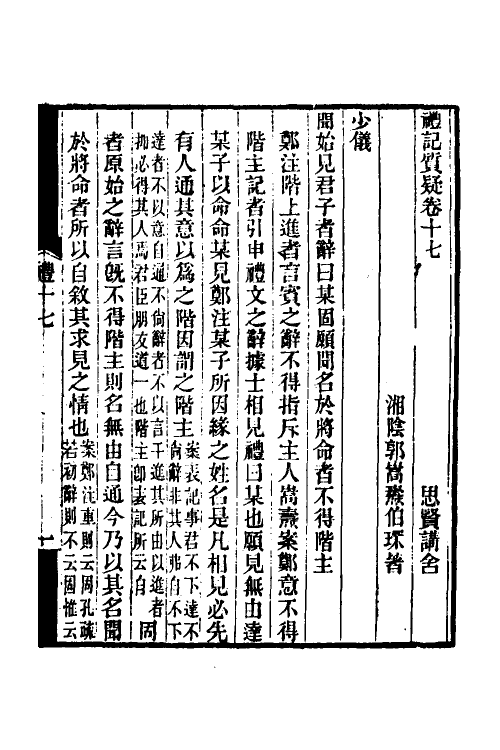 禮記質疑卷十七
思賢講舍
湘陰郭嵩燾伯琛著
少儀
聞始見君子者辭曰某固願聞名於將命者不得階主
鄭注階上進者言賓之辭不得指斥主人嵩燾案鄭意不得
階主記者引申禮文之辭據士相見禮曰某也願見無由達
某子以命命某見鄭注某子所因緣之姓名是凡相見必先
有人通其意以為之階因謂之階主
案表記事君不下達不
尚辭非其人弗自不下
達者不以意自通不尚辭者不以言干進其所由以進者
必得其人焉君臣朋友道一也階主卽表記所云自
固
者原始之辭言旣不得階主則名無由自通今乃以其名聞
於將命者所以自敘其求見之情也
案鄭注重則云固孔疏
若初辭則不云固惟云
禮十七
一